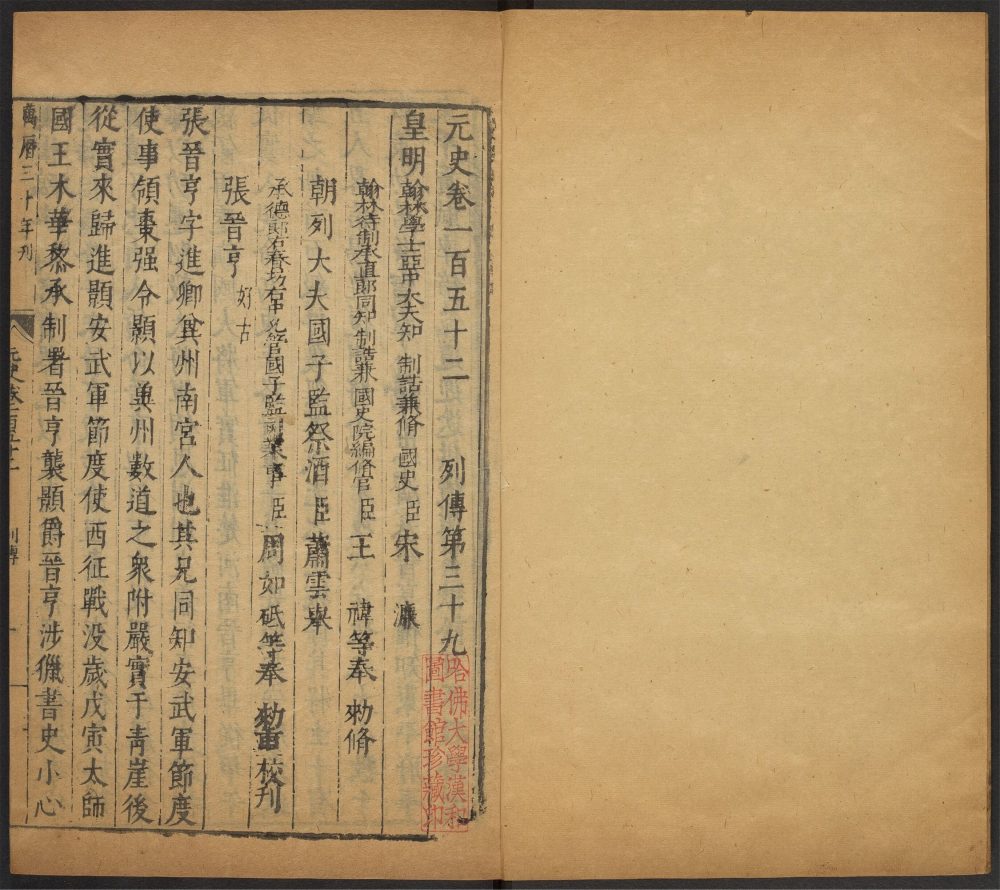 元史卷一百五十二 列傳第三十九
皇明翰林學士亞中大夫知 制誥兼脩 國史臣宋 濂
翰林待制承直郎同知 制誥兼 國史院編脩官臣王 禕等奉 勑脩
朝列大夫國子監祭酒臣蕭雲舉
承德郎右春坊右中允管國子監司業事臣周如砥等奉 勑重校刊
張晉亨 好古
張晉亨字進卿冀州南宮人也其兄同知安武軍節度
使事領棗强令顯以冀州數道之衆附嚴實于青崖後
從實來歸進顯安武軍節度使西征戰没歲戊寅太師
國王木華黎承制署晉亨襲顯爵晉亨涉獵書史小心
萬曆三十年刊
元史卷一百五十二 列傳 一
哈佛大學漢和
圖書館珍藏印